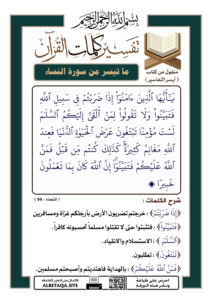 بسم الله الرحمن الرحيم
تفسير كلمات القرآن
منقول من كتاب
( أيسر التفاسير )
ما تيسر من سورة النساء
يَٰٓأَيُّهَا ٱلَّذِينَ ءَامَنُوٓا۟ إِذَا ضَرَبْتُمْ فِى سَبِيلِ ٱللَّهِ
فَتَبَيَّنُوا۟ وَلَا تَقُولُوا۟ لِمَنْ أَلْقَىٰٓ إِلَيْكُمُ ٱلسَّلَٰمَ
لَسْتَ مُؤْمِنًا تَبْتَغُونَ عَرَضَ ٱلْحَيَوٰةِ ٱلدُّنْيَا فَعِندَ
ٱللَّهِ مَغَانِمُ كَثِيرَةٌ كَذَٰلِكَ كُنتُم مِّن قَبْلُ فَمَنَّ
ٱللَّهُ عَلَيْكُمْ فَتَبَيَّنُوٓا۟ إِنَّ ٱللَّهَ كَانَ بِمَا تَعْمَلُونَ
خَبِيرًا
شرح الكلمات :
( النساء : 94 )
﴿إِذَا ضَرَبْتُمْ﴾ : خرجتم تضربون الأرض بأرجلكم غزاة ومسافرين
﴿فَتَبَيَّنُوا۟﴾ : فتثبتوا حتى لا تقتلوا مسلماً تحسبونه كافراً.
﴿ٱلسَّلَٰمَ﴾ : الاستسلام والانقياد.
﴿تَبْتَغُونَ﴾ : تطلبون.
﴿فَمَنَّ ٱللَّهُ عَلَيْكُمْ﴾ : بالهداية فاهتديتم وأصبحتم مسلمين.
ALBETAQA.SITE